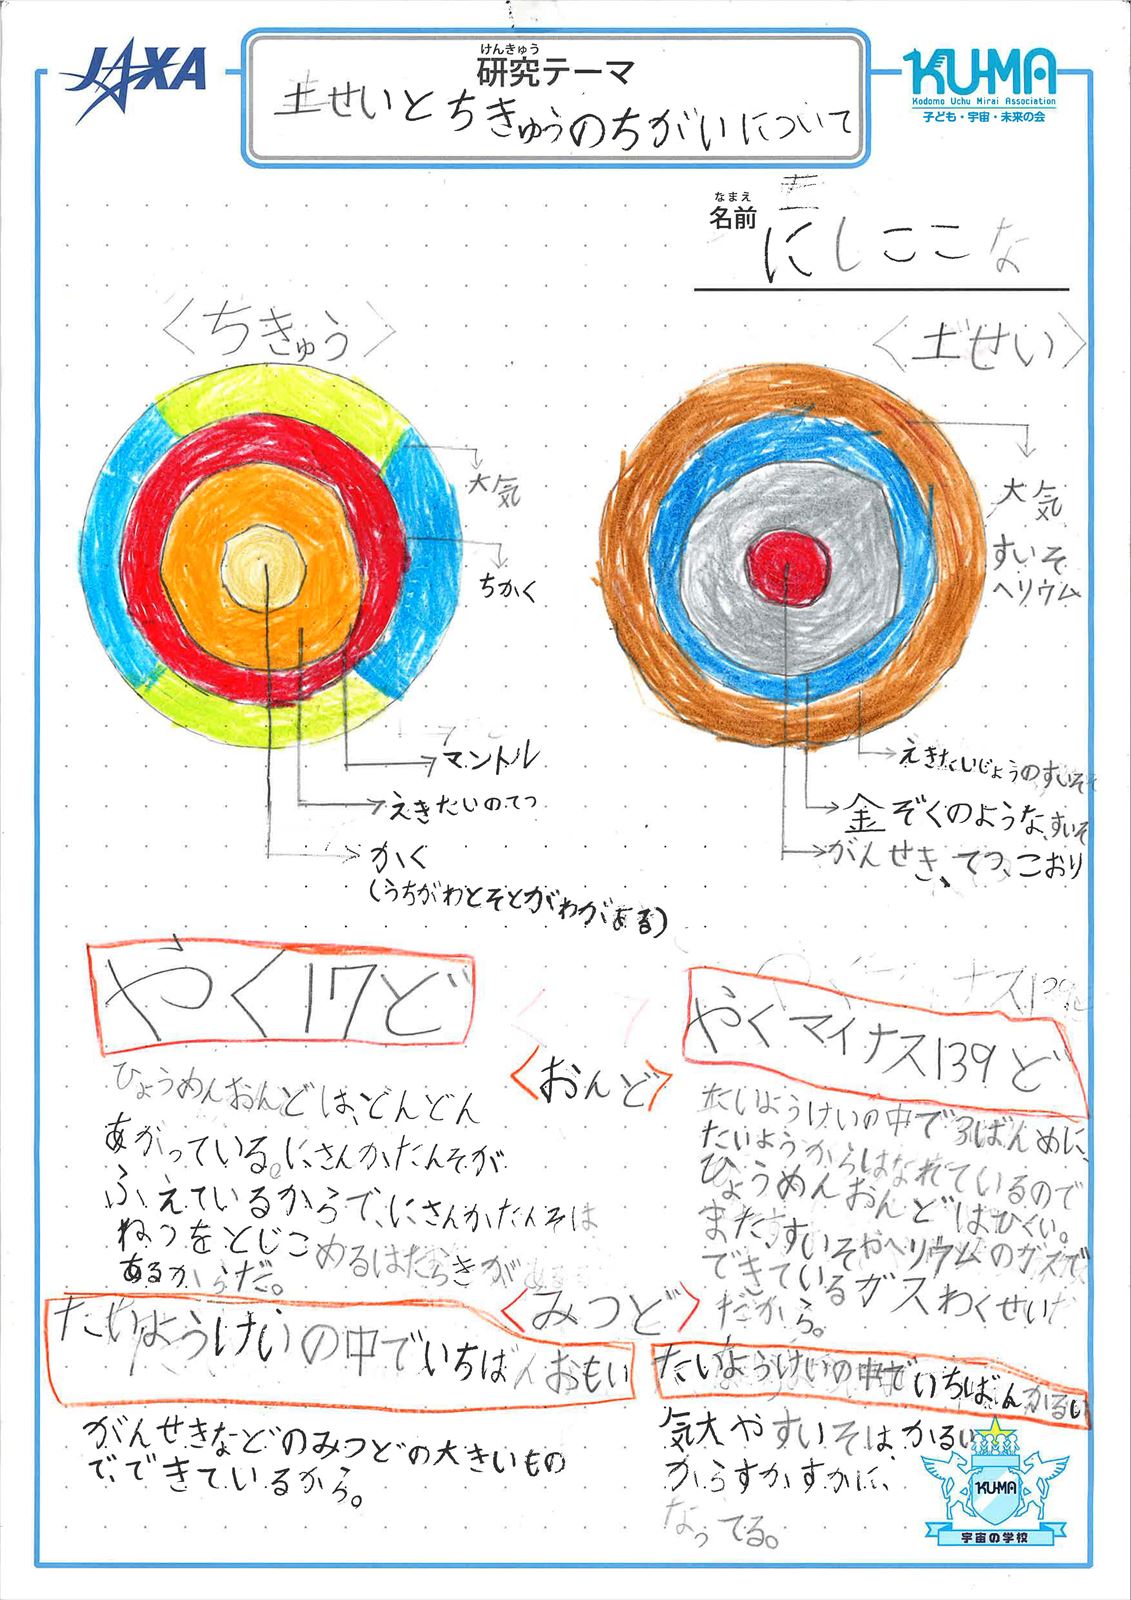 JAXA
けんきゅう
研究テーマ
土せいとちきゅうのちがいについて
KU-MA
Kodomo Uchu Mirai Association
子ども・宇宙・未来の会
なまえ
名前
にしここな
〈ちきゅう〉
大気
ちかく
マントル
えきたいのてつ
かく
(うちがわとそとがわがある)
〈土せい〉
大気
すいそ
ヘリウム
えきたいじょうのすいそ
金ぞくのような、すいそ
がんせき、てつ、こおり
〈おんど〉
やく17ど
ひょうめんおんどは、どんどん
あがっている。にさんかたんそが
ふえているからで、にさんかたんそは
ねつをとじこめるはたらきがある
あるからだ。
やくマイナス139ど
たいようけいの中で3ばんめに、
たいようからはなれているので
ひょうめんおんどはひくい。
また、すいそやヘリウムのガスで
できているガスわくせいだ
だから。
〈みつど〉
たいようけいの中でいちばんおもい
がんせきなどのみつどの大きいもの
で、できているから。
たいようけいの中でいちばんかるい
気大やすいそは、かるい
からすかすかに、
なってる。
KU-MA
宇宙の学校